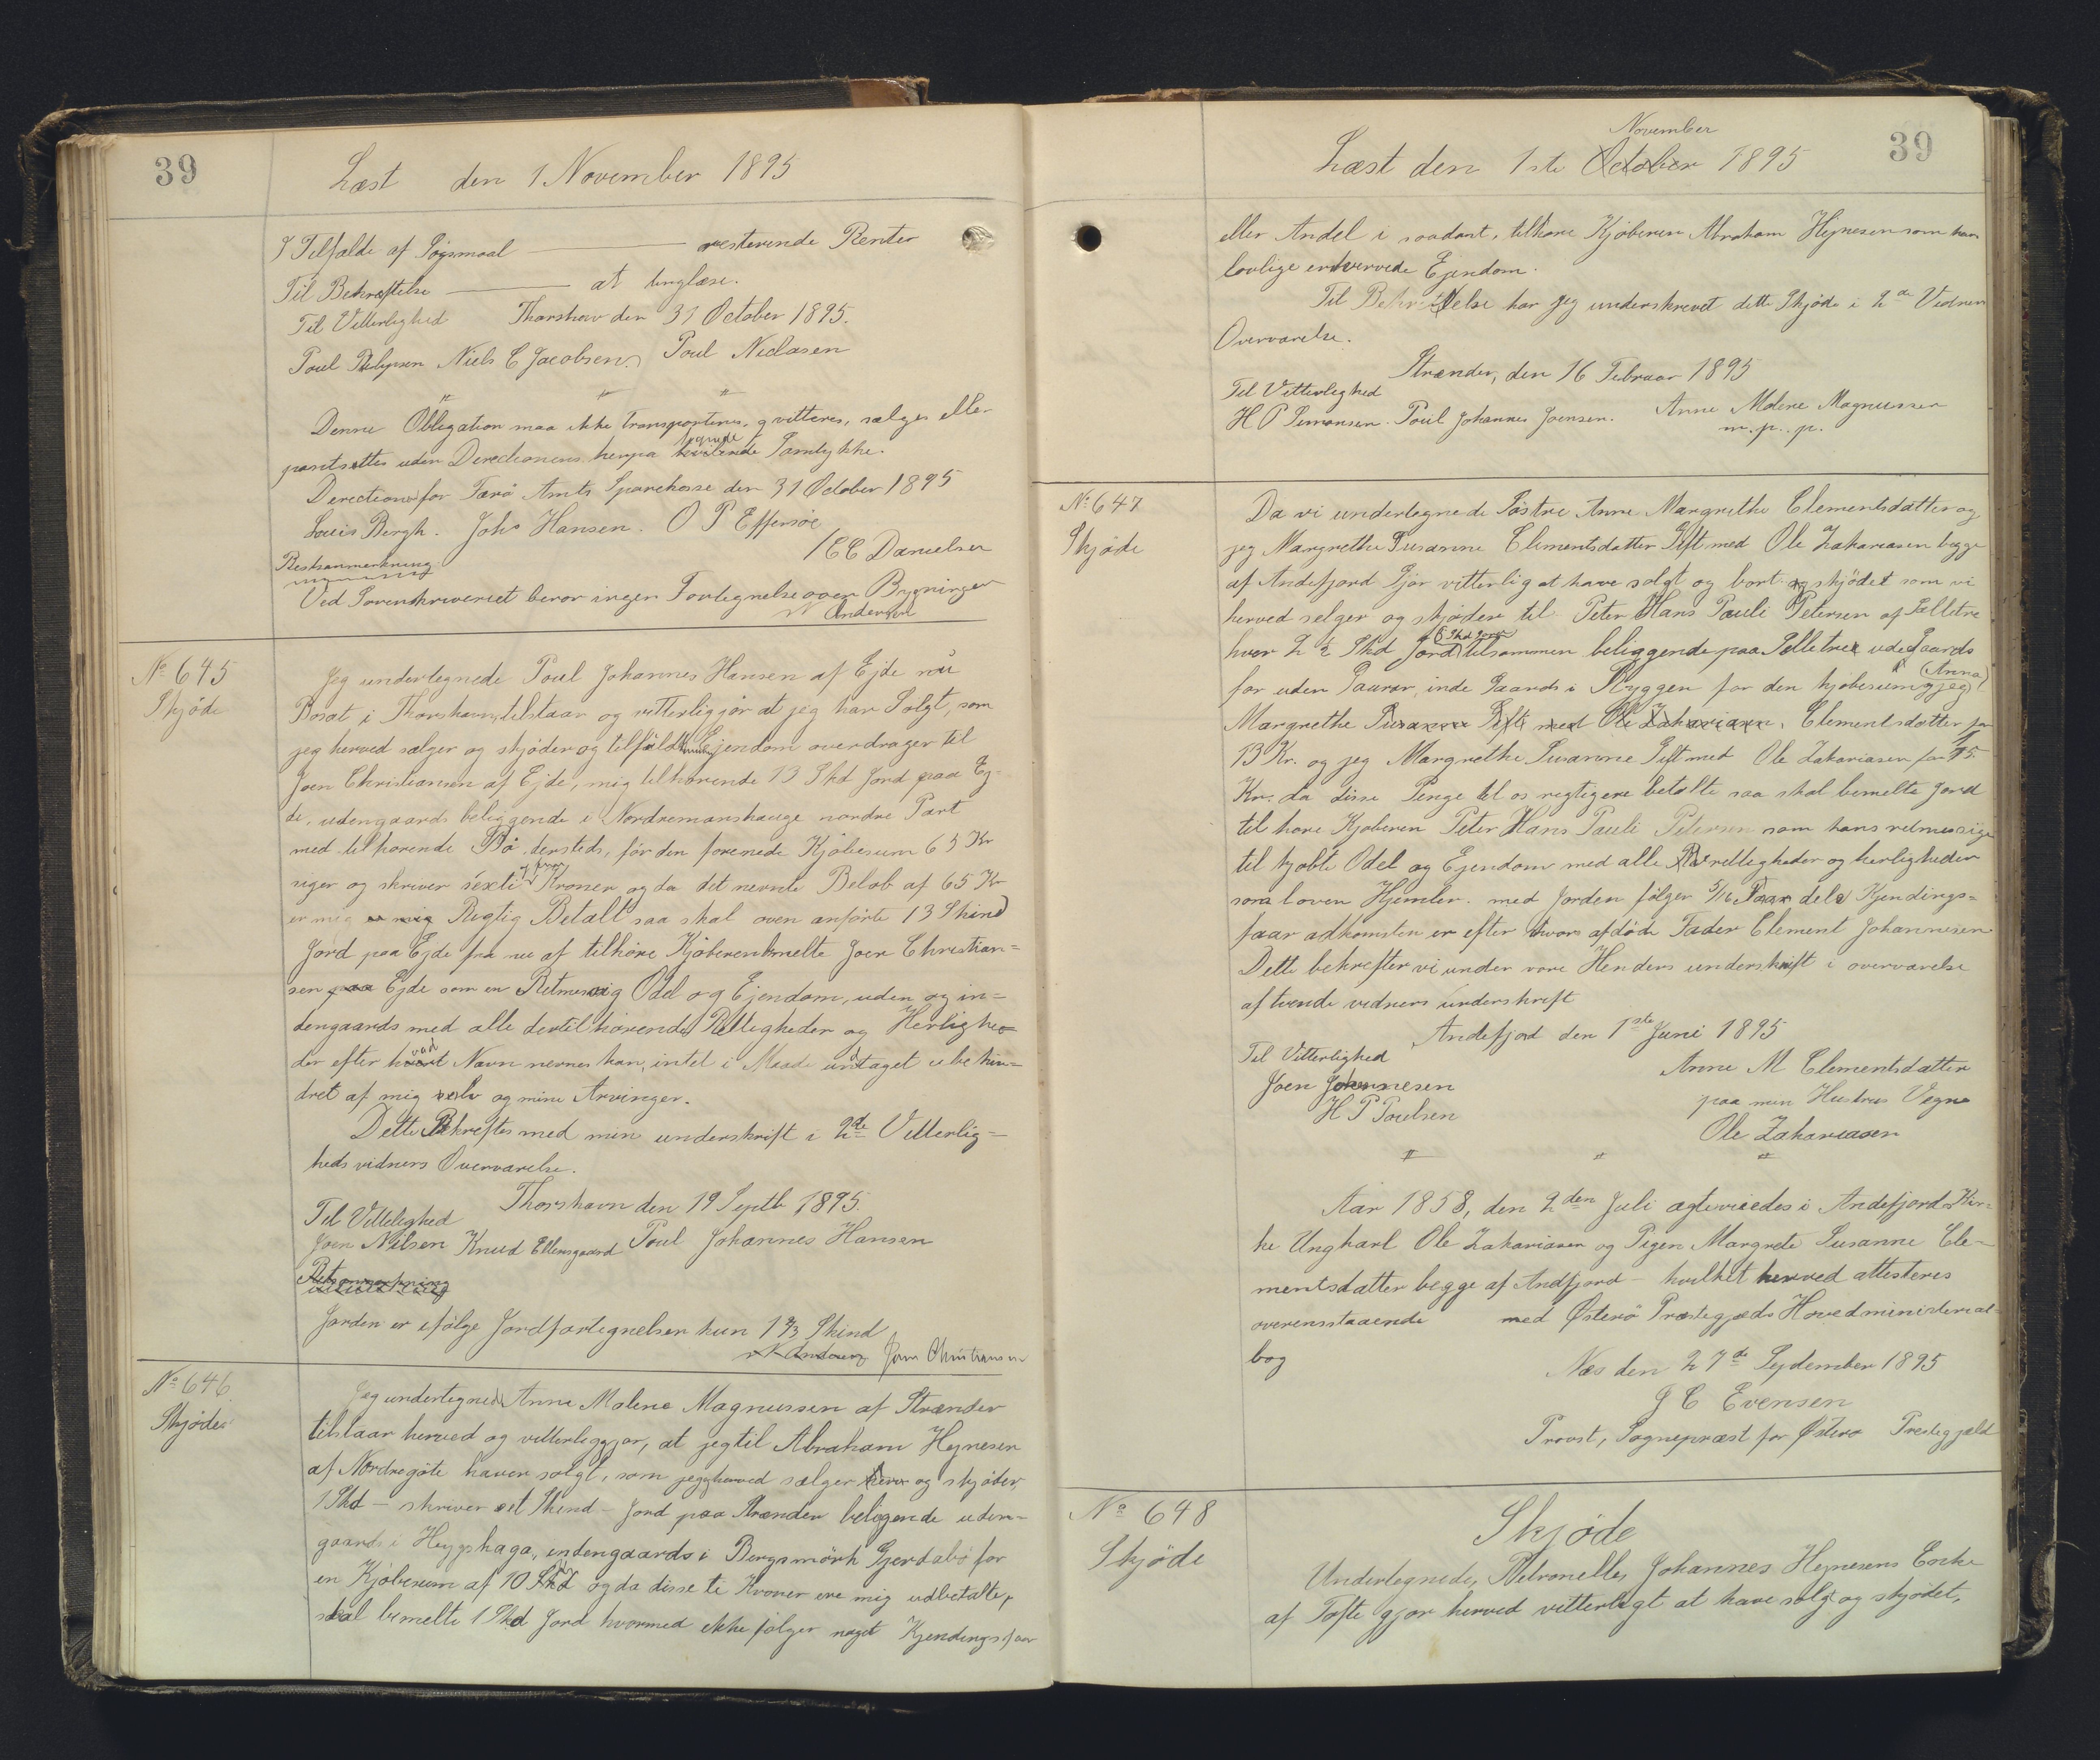 39
Læst den 1 November 1895
I Tilfælde af Søgsmaal — resterende Renter
Til Bekræftelse — at tinglæse.
Til Vitterlighed Thorshavn den 31 October 1895.
Poul Niels C Jacobsen. Poul Niclasen
Denne Obligation maa ikke transporteres, qvitteres, sælges eller
pantsættes uden Directionens herpaa tegnede Samtykke.
Directionen for Færø Amts Sparekasse den 31 October 1895
Louis Bergh. Johs Hansen. O P Effersøe
/ C C Danielsen
Retsanmerkning
Ved Sorenskriveriet beror ingen Fortegnelse over Bygninger
N Andersen
No 645
Skjøde
Jeg undertegnede Poul Johannes Hansen af Ejde nu
Bosat i Thorshavn, tilstaar og vitterliggjør at jeg har Solgt, som
jeg herved sælger og skjøder og til Ejendom overdrager til
Joen Christiansen af Ejde, mig tilhørende 13 Skd Jord paa Ej-
de, udengaards beliggende i Nordremanshauge nordre Part
med tilhørende Bø dersteds, før den forenede Kjøbesum 65 Kr
siger og skriver sexti og fem Kroner, og da det nevnte Beløb af 65 Kr
er mig er mig Rigtig Betalt saa skal oven anførte 13 Skind
Jord paa Ejde fra nu af tilhøre Kjøberen bmelte Joen Christian=
sen paa Ejde som en Retmesig Odel og Ejendom, uden og in=
dengaards med alle dertil hørende Rettigheder og Herlighe=
der efter hvad Navn nevnes kan, intet i Maade undtaget ube hin=
dret af mig selv og mine Arvinger.
Dette Bekreftes med min underskrift i 2de Vitterlig=
heds vidners Overværelse.
Thorshavn den 19 Septb 1895.
Til Vitterlighed
Joen Nilsen Knud Ellensgaard Poul Johannes Hansen
Retsanmerkning
Jorden er ifølge Jordfortegnelsen kun 1 2/3 Skind
N Andersen Joen Christiansen
No 646
Skjøde
Jeg undertegnede Anne Malene Magnussen af Strænder
tilstaar herved og vitterliggjør, at jeg til Abraham Hejnesen
af Nordregøte haver solgt, som jeg herved sælger og skjøder,
1 Skd — skriver et Skind — Jord paa Strænder beliggende uden-
gaards i Heygshaga, indengaards i Bergsmørk Gjerdabø for
en Kjøbesum af 10 Kr og da disse ti Kroner ere mig udbetalte,
skal bemelte 1 Skd Jord hvormed ikke følger noget Kjendingsfaar
39
November
Læst den 1ste October 1895
eller Andel i saadant, tilhøre Kjøberen Abraham Hejnesen som hans
lovlige erhvervede Ejendom.
Til Bekræftelse har jeg underskrevet dette Skjøde i 2de Vidners
Overværelse.
Strænder, den 16 Februar 1895
Til Vitterlighed
H P Simonsen. Poul Johannes Joensen. Anne Malene Magnussen
m. p. p.
No 647
Skjøde
Da vi undertegnede Søstre Anne Margrethe Clementsdatter og
jeg Margrethe Susanne Clementsdatter Gift med Ole Zakariasen begge
af Andefjord Gjør vitterlig at have solgt og bort og skjødet som vi
herved selger og skjøder til Peter Hans Pauli Petersen af Selletræ
hver 2 ½ Skd Jord tilsammen beliggende paa Selletræ udegaards
for uden Gaurar, inde Gaards i Ryggen for den kjøbesum jeg (Anna)
Margrethe Susanne Gift med Ole Zakariasen, Clementsdatter for
13 Kr. og jeg Margrethe Susanne Gift med Ole Zakariasen for 15
Kr. da disse Penge til os rigtig ere betalte saa skal bemelte Jord
til høre Kjøberen Peter Hans Pauli Petersen som hans retmessige
til kjøbte Odel og Ejendom med alle Rettigheder og herligheder
som loven Hjemler. med Jorden følger 5/16 Faar dele Kjendings=
faar adkomsten er efter vors afdøde Fader Clement Johannesen
Dette bekrefter vi under vore Henders underskrift i overværelse
af tvende vidners underskrift
Andefjord den 1ste Juni 1895
Til Vitterlighed
Joen Johannesen
H P Poulsen
Anne M Clementsdatter
paa min Hustrus Vegne
Ole Zakariasen
Aar 1858, den 2den Juli ægteviedes i Andefjords Kir-
ke Ungkarl Ole Zakariasen og Pigen Margrete Susanne Cle-
mentsdatter begge af Andfjord — hvilket herved attesteres
overensstaaende med Østerø Præstegjælds Hovedministerial-
bog
Næs den 27de September 1895
J C Evensen
Provst, Sognepræst for Østerø Prestegjæld
No 648
Skjøde
Skjøde
Undertegnede, Petronelle, Johannes Hejnesens Enke
af Tofte gjør herved vitterligt at have solgt og skjødet,